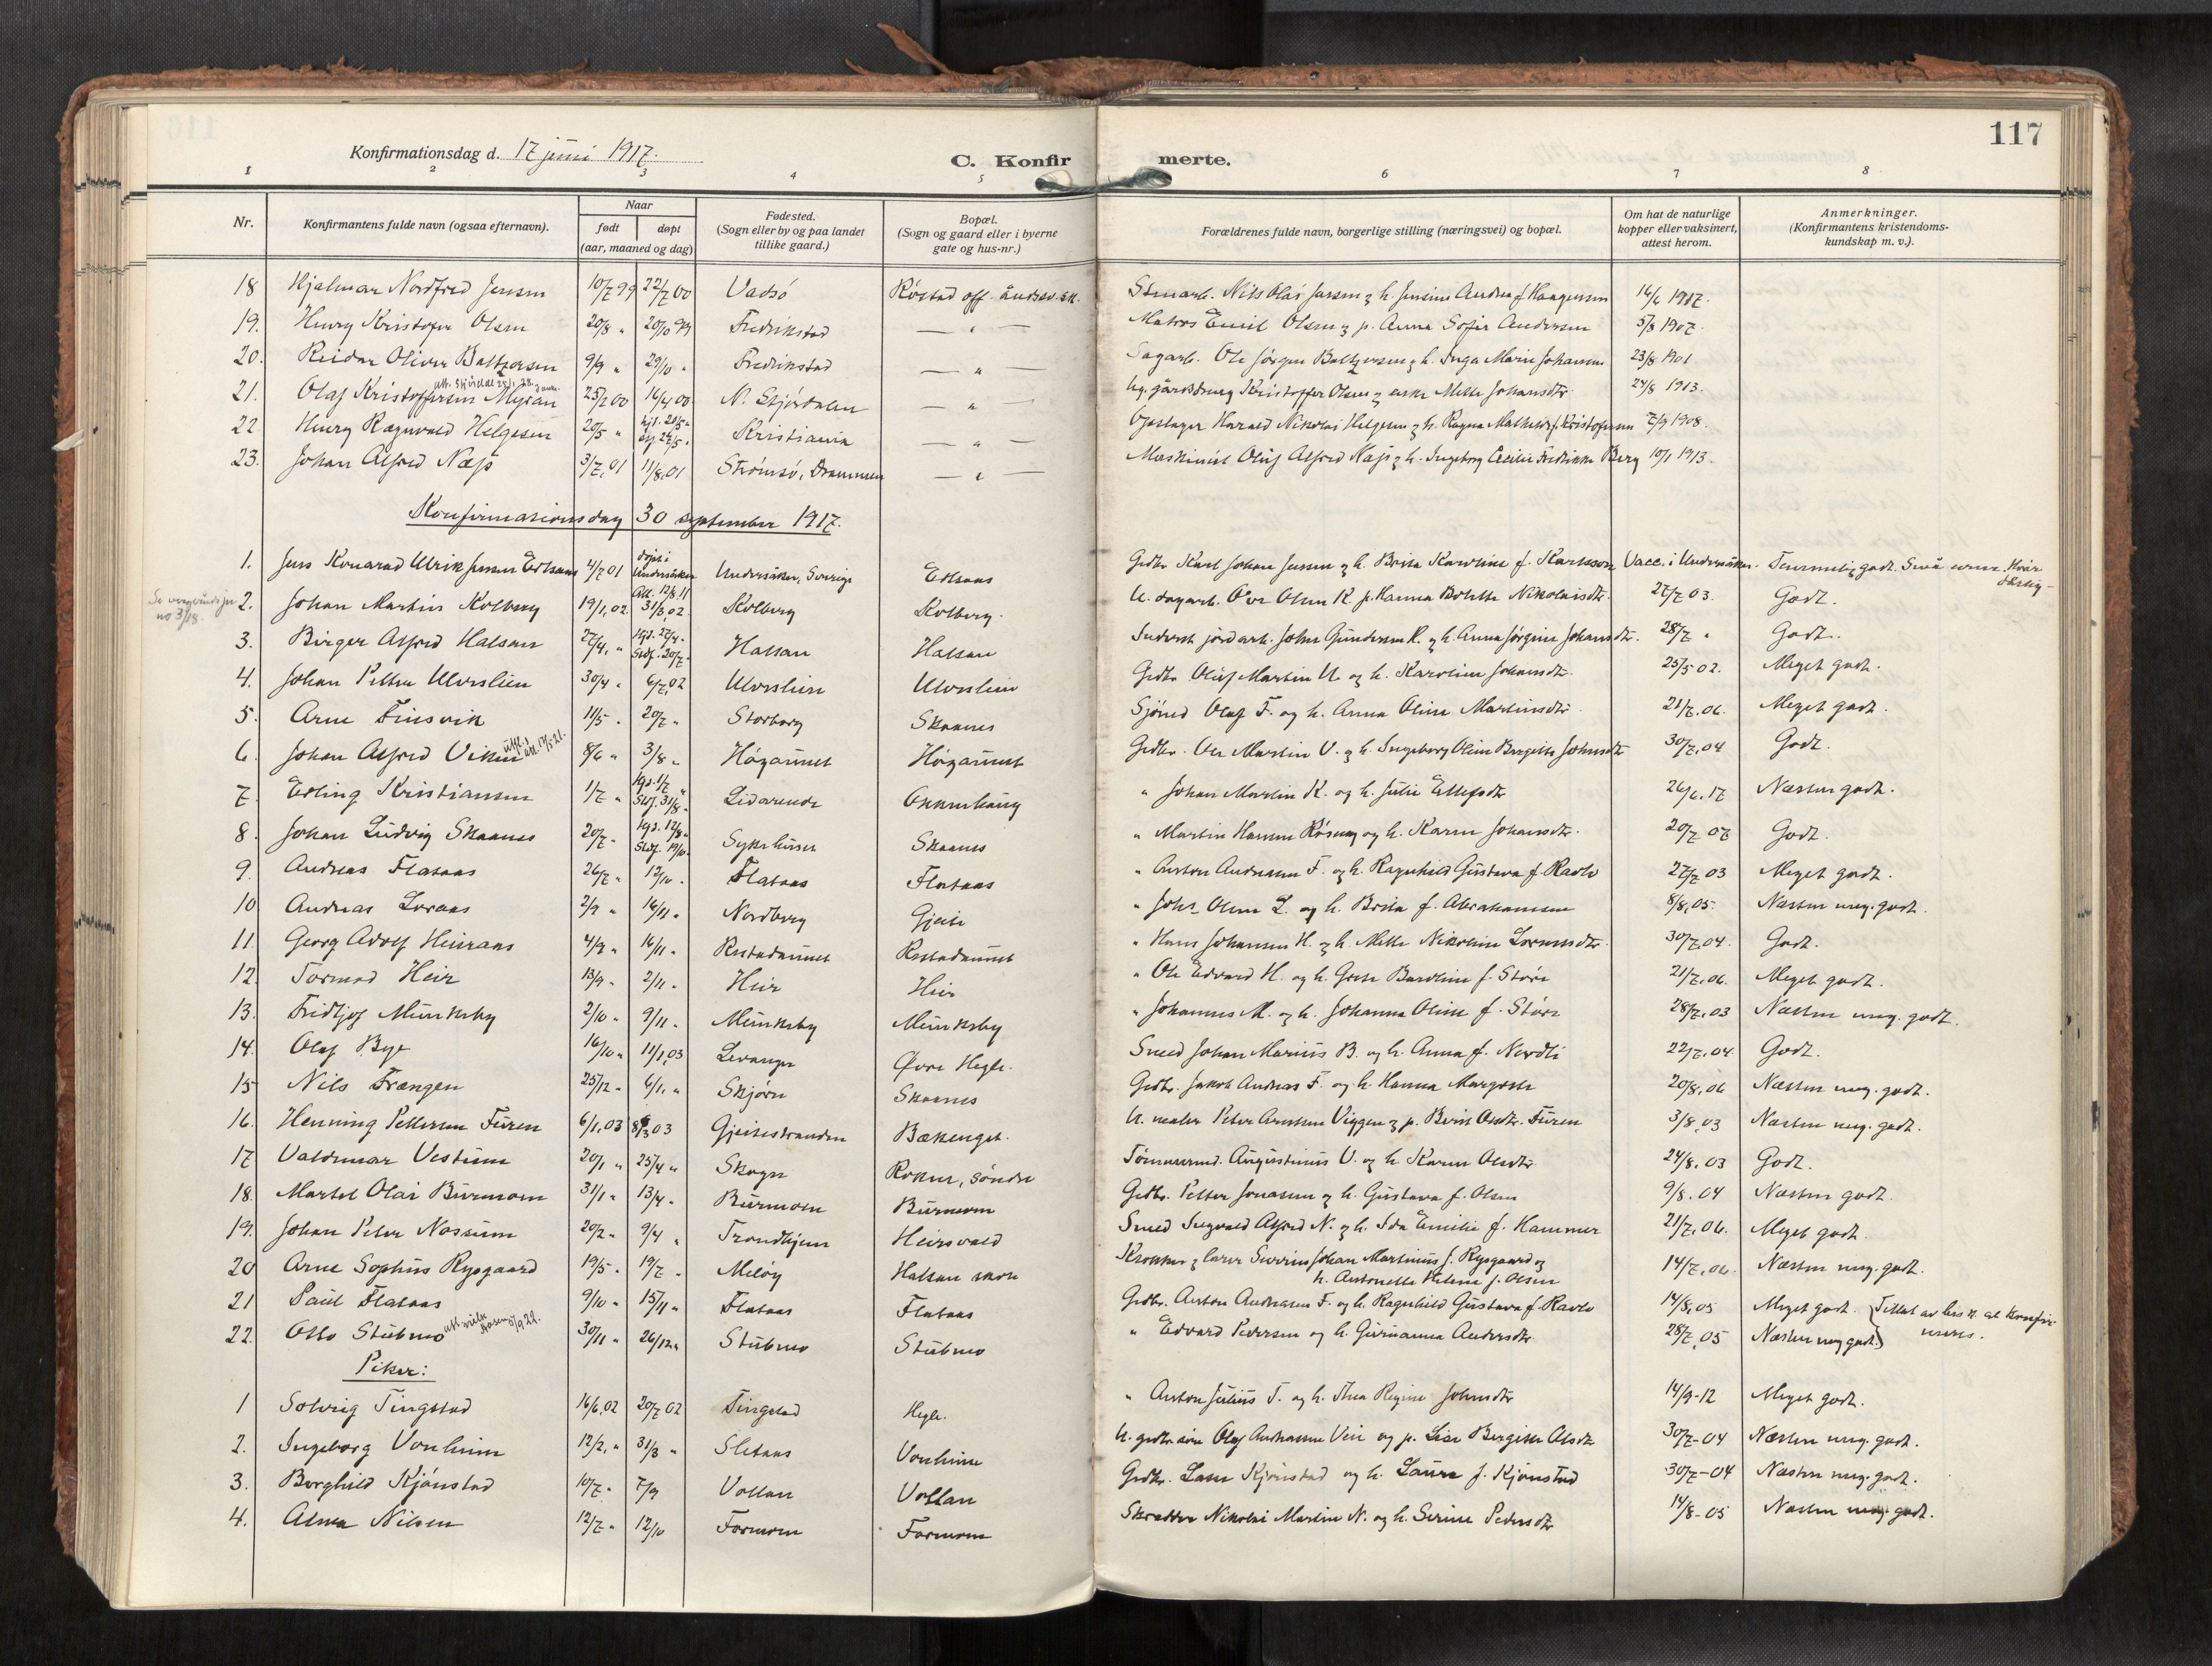 117
Konfirmationsdag d. 17 juni 1917.
C. Konfirmerte.
1 2 3 4 5 6 7 8
Nr.
Konfirmantens fulde navn (ogsaa efternavn).
Naar
født
døpt
(aar, maaned og dag)
Fødested.
(Sogn eller by og paa landet
tillike gaard.)
Bopæl.
(Sogn og gaard eller i byerne
gate og hus-nr.)
Forældrenes fulde navn, borgerlige stilling (næringsvei) og bopæl.
Om hat de naturlige
kopper eller vaksinert,
attest herom.
Anmerkninger.
(Konfirmantens kristendoms-
kundskap m. v.).
18 Hjalmar Nordfred Jensen 10/7 99 22/7 00 Vadsø Røstad off. 16/6 1917.
19. Henry Kristofer Olsen 20/8 " 20/10 99 Fredrikstad — " — Matros Emil Olsen og p. Anna Sofie Andersen 5/8 1907.
20. Reidar Oliver Baltzersen 9/9 " 29/10 " Fredrikstad — " — Sagarb. Ole Jørgen Baltzersen og h. Inga Marie Johansen 23/8 1901
21. Olaf Kristoffersen Myran 25/2 00 16/4 00 N. Stjørdalen — " — Kristoffer Olsen og enke Mette Johansdtr. 24/8 1913.
22. Henry Ragnvald Helgesen 20/5 " Kristiania — " — Harald Nikolai Helgesen og h. Ragna Mathilde f. Kristofersen 7/9 1908.
23. Johan Alfred Næss 3/7.01 11/8.01 Strømsø, Drammen — " — Maskinist Oluf Alfred Næss og h. Ingeborg Cecilie Fredrikke Berg 10/1 1913.
Konfirmationsdag 30 september 1917.
1. Jens Konarad Ulrik Jensen Ertsaas 4/7 01 døpt i Undersåker Att. 12/8 11 Undersåker, Sverige Ertsaas Gedbr. Karl Johan Jensen og h. Brita Karoline f. Karlsson Vacc. i Undersåker. Temmelig godt.
no 3/18.
2. Johan Martin Kolberg 19/1.02. 31/3.02 Kolberg Kolberg. U. dagarb. Ole Olsen K. p. Hanna Bolette Nikolaisdtr. 27/7 03. Godt.
3. Birger Alfred Halsan 27/4. " Hjd. 27/4. Stdf. 20/7. Halsan Halsan Inderst jordarb. Johan Gundersen H. og h. Anna Jørgine Johansdtr. 28/7 " Godt.
4. Johan Petter Ulvslien 30/4 " 6/7.02 Ulvslien Ulvslien Gedbr. Oluf Martin U. og h. Karoline Johansdtr. 25/5 02. Meget godt.
5. Arne Finsvik 11/5 " 20/7 " Storborg Skaanes Sjömd Olaf F. og h. Anna Oline Martinsdtr. 21/7.06. Meget godt.
6. Johan Alfred Viken 8/6 " 3/8 " Høgaunet Høgaunet Gedbr. Ole Martin V. og h. Ingeborg Oline Bergitte Johnsdtr 30/7.04 Godt.
7. Erling Kristiansen 1/7 " Hjd. 1/7 " Stdf. 31/8 " Lidarende Okkenhaug " Johan Martin K. og h. Julie Ellefsdtr 26/6.17 Næsten godt.
8. Johan Ludvig Skaanes 20/7 " Hjd. 12/8 " Stdf. 19/10. Sykehuset Skaanes " Martin Hansen Røsveg og h. Karen Johansdtr. 20/7 07 Godt.
9. Andreas Flataas 26/7 " 12/10 " Flataas Flataas " Anton Andreasen F. og h. Ragnhild Gustava f. Ravlo 27/7 03 Meget godt.
10. Andreas Loraas 2/9 " 16/11 " Nordberg Gjeite " Johs. Olsen L. og h. Brita f. Abrahamsen 8/8.05. Næsten meg. godt.
11. Georg Adolf Heiraas 4/9 " 16/11 " Restadaunet Restadaunet " Hans Johansen H. og h. Mette Nikoline Lorensdtr. 30/7.04. Godt.
12. Tormod Heir 13/9 " 2/11 " Heir Heir " Ole Edvard H. og h. Grete Bardline f. Støre 21/7.06. Meget godt.
13. Fridtjof Munkeby 2/10 " 9/11 " Munkeby Munkeby " Johannes M. og h. Johanna Oline f. Støre 28/7.03 Næsten meg. godt.
14. Olaf Bye 16/10 " 11/1.03 Levanger Øvre Hegle. Smed Johan Marius B. og h. Anna f. Nordli 22/7.04. Godt.
15 Nils Frængen 25/12 " 6/1. " Skjørn Skaanes Gedbr. Jakob Andreas F. og h. Hanna Margrete 20/8.06 Næsten meg. godt.
16. Henning Pettersen Furen 6/1.03 8/3 03 Gjeitestranden Bækenget. U. maler Peter Arntsen Viggen og p. Berit Olsdtr. Furen 3/8.03 Næsten meg. godt.
17 Valdemar Vestum 20/1 " 25/4 " Skogn Rokne, søndre Tömmermd. Augustinus V. og h. Karen Olsdtr. 24/8.03 Godt.
18. Martel Olai Burmoen 31/1 " 13/4 " Burmoen Burmoen Gedbr. Petter Jonasen og h. Gustava f. Olsen 9/8.04 Næsten godt.
19. Johan Peter Nossum 20/2 " 9/4 " Trondhjem Heirsvald Smed Sigvald Alfred N. og h. Ida Emilie f. Hammer 21/7.06. Meget godt.
20 Arne Sophus Rysgaard 19/5 " 19/7 " Meløy Halsan skole Kirkesr. og lærer Severin Johan Martinus J. Rysgaard og
h. Antonette Helene f. Olsen 14/7.06. Næsten meg. godt.
21 Paul Flataas 9/10 " 15/11 " Flataas Flataas Gedbr. Anton Andreasen F. og h. Ragnhild Gustava f. Ravlo 14/8.05 Meget godt.
22. Otto Stubmo 30/11 " 26/12 " Stubmo Stubmo " Edvard Pedersen og h. Germanna Andersdtr. 28/7.05 Næsten meg godt.
Piker:
1 Solveig Tingstad 16/6.02 20/7 02 Tingstad Hegle. " Anton Julius T. og h. Thea Regine Johnsdtr 14/9-12 Meget godt.
2. Ingeborg Vonheim 12/2. " 31/3 " Sletaas Vonheim U. gedbr.søn Olaf Andreassen Veie og p. Lise Bergitte Olsdtr 30/7-04 Næsten meg. godt.
3. Borghild Kjønstad 10/7 " 7/9 Vollan Vollan Gedbr. Lars Kjønstad og h. Laura f. Kjønstad 30/7-04 Næsten meg. godt.
4. Alma Nilsen 12/7 " 12/10 Formoen Formoen Skrædder Nikolai Martin N. og h. Serine Pedersdtr 14/8-05 Næsten meg. godt.